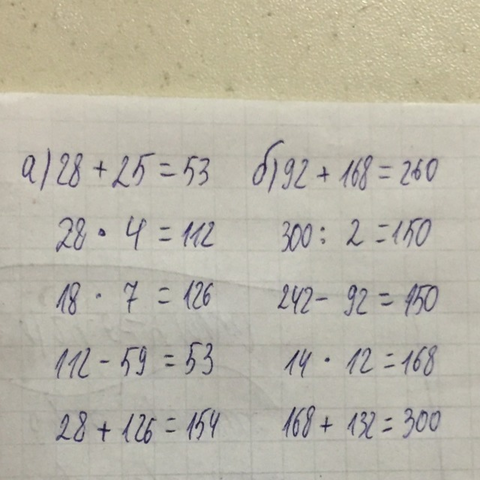 а) 28 + 25 = 53
28 · 4 = 112
18 · 7 = 126
112 - 59 = 53
28 + 126 = 154
б) 92 + 168 = 260
300 : 2 = 150
242 - 92 = 150
14 · 12 = 168
168 + 132 = 300